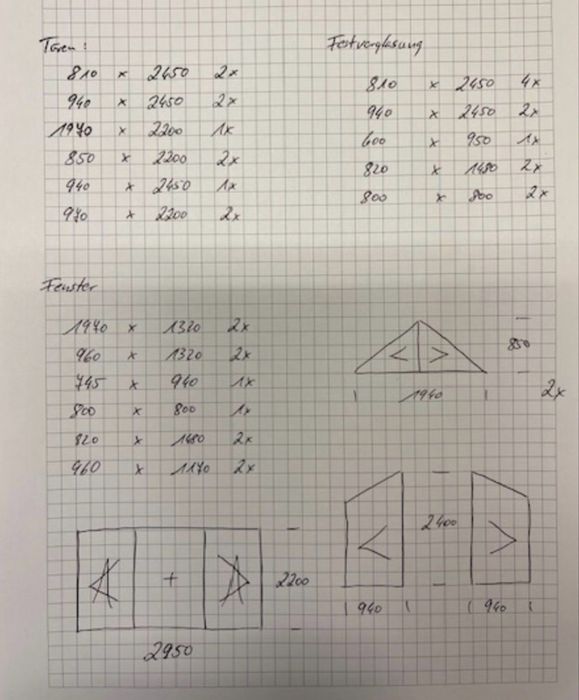 Türen:
810 x 2450 2x
940 x 2450 2x
1970 x 2200 1x
850 x 2200 2x
940 x 2450 1x
970 x 2200 2x
Festverglasung
810 x 2450 4x
940 x 2450 2x
600 x 950 1x
820 x 1480 2x
800 x 800 2x
Fenster
1970 x 1320 2x
960 x 1320 2x
745 x 940 1x
800 x 800 1x
820 x 1480 2x
960 x 1170 2x
850
1940
2x
2400
940
940
2200
2950